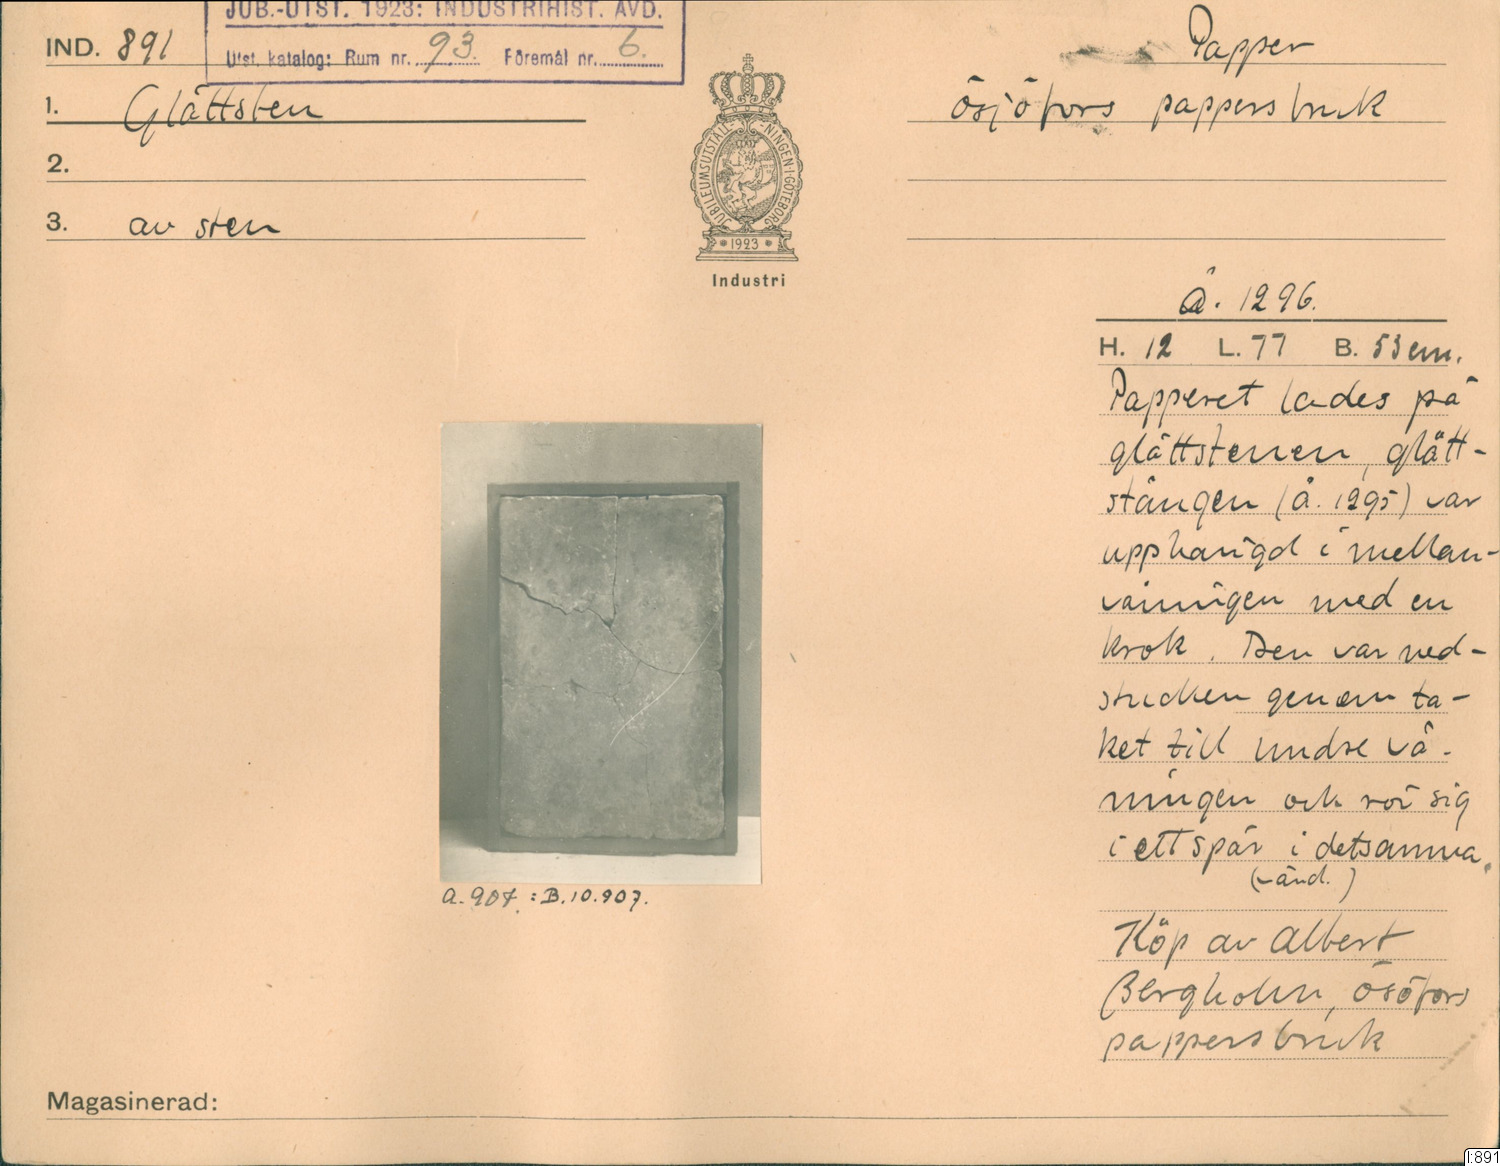 JUB.-UTST. 1923: INDUSTRIHIST. AVD.
Utst. katalog: Rum nr. 93. Föremål nr. 6.
IND. 891
1. Glättsten
2.
3. av sten
JUBILEUMSUTSTÄLL-NINGEN·I·GÖTEBORG
1923
Industri
Papper
Ösjöfors pappersbruk
Å. 1296.
H. 12 L. 77 B. 53 cm.
Papperet lades på
glättstenen, glätt-
stången (Å. 1295) var
upphängd i mellan-
våningen med en
krok. Den var ned-
stucken genom ta-
ket till undre vå-
ningen och rör sig
i ett spår i detsamma.
(vänd.)
Köp av Albert
Bergholm, Ösöfors
pappersbruk
A. 907. : B.10.907.
Magasinerad:
I:891